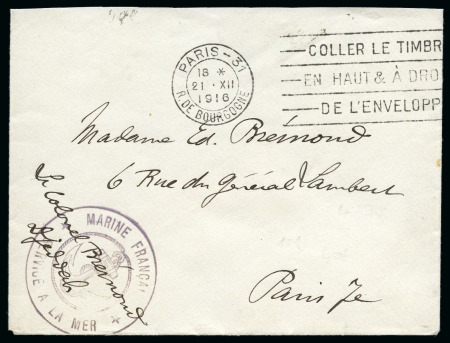 PARIS-31
18 *
21 · XII
1916
R. DE BOURGOGNE
COLLER LE TIMBR
EN HAUT & À DRO
DE L'ENVELOPP
Madame Ed. Brémond
6 Rue du Général Lambert
Paris 7e
Le Colonel Brémond
Djeddah
MARINE FRANÇAI
SERVICE À LA MER